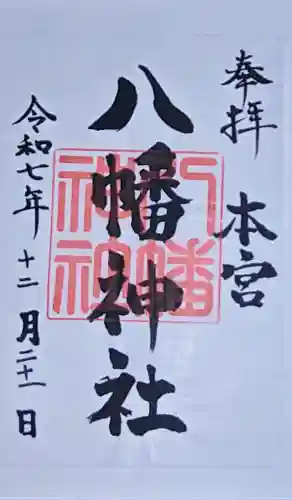 奉拝
本宮
八幡神社
八幡神社
令和七年
十二月二十一日